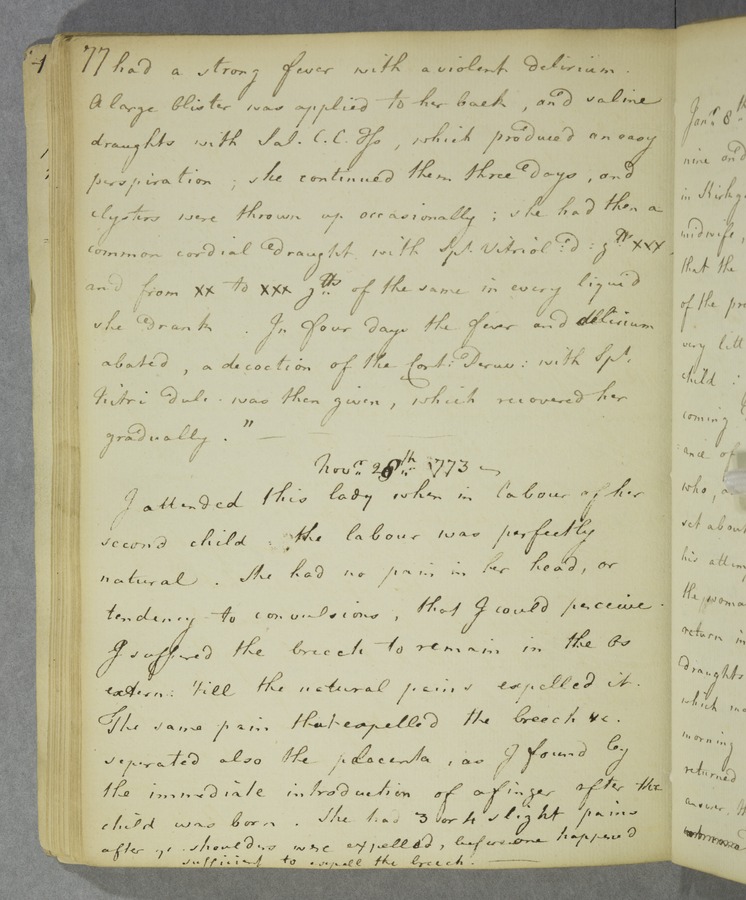 77 had a strong fever with a violent delirium.
A large blister was applied to her back, and saline
draughts with Sal. C.C. , which produced an easy
perspiration; she continued them three days, and
clysters were thrown up occasionally; she had then a
common cordial draught with Spt. Vitriol: d: gtts xxx
and from xx to xxx gtts of the same in every liquid
she drank. In four days the fever and delirium
abated, a decoction of the Cort: Peruv: with Spt.
Nitri Dulc. was then given, which recovered her
gradually."
Novr. 26th 1773
I attended this lady when in labour of her
second child: the labour was perfectly
natural. She had no pain in her head, or
tendency to convulsions, that I could perceive.
I suffered the breech to remain in the Os
extern: 'till the natural pains expelled it.
The same pain that expelled the breech &c.
seperated also the placenta, as I found by
the immediate introduction of a finger after the
child was born. She had 3 or 4 slight pains
after ye. shoulders were expelled, before one happened
sufficient to expell the breech.
Janr. 8th
nine and
in
midwife,
that the
of the
very litt
child:
coming
and of
who, a
set about
his
the woma
return in
draughts
which
morning
returned
answer.